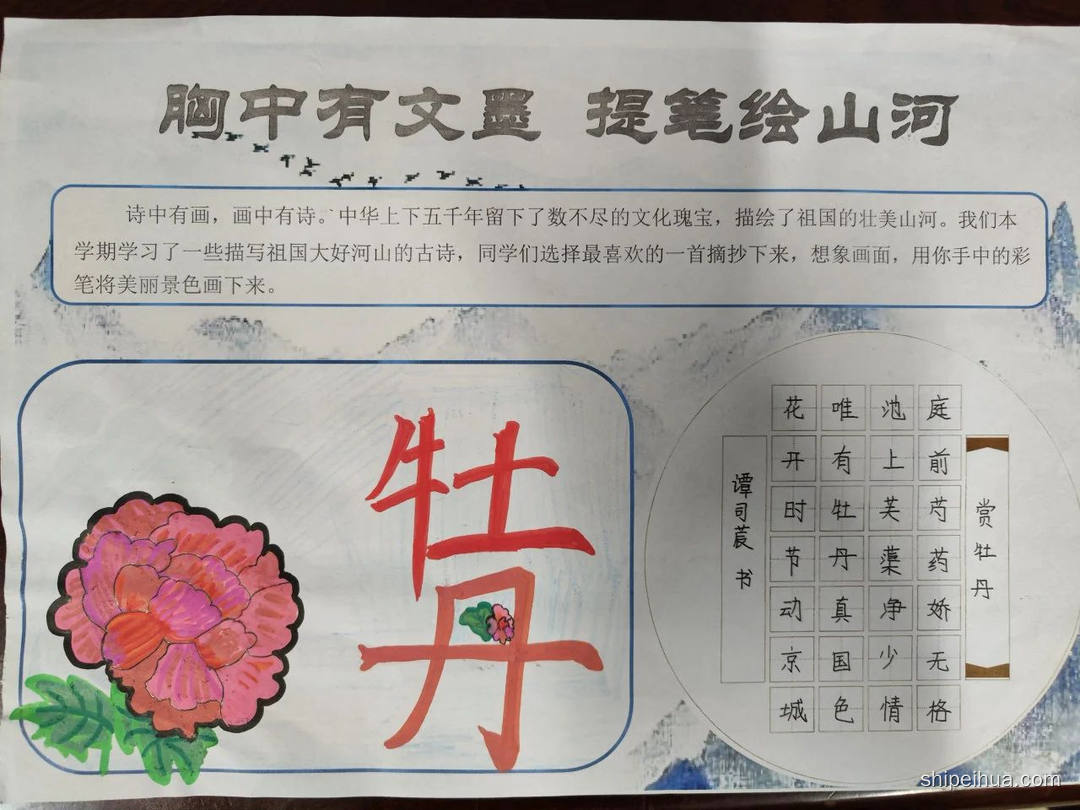 胸中有文墨 提笔绘山河
诗中有画，画中有诗。中华上下五千年留下了数不尽的文化瑰宝，描绘了祖国的壮美山河。我们本
学期学习了一些描写祖国大好河山的古诗，同学们选择最喜欢的一首摘抄下来，想象画面，用你手中的彩
笔将美丽景色画下来。
牡丹
赏牡丹
庭前芍药娇无格
池上芙蕖净少情
唯有牡丹真国色
花开时节动京城
谭司 书
shipeihua.com